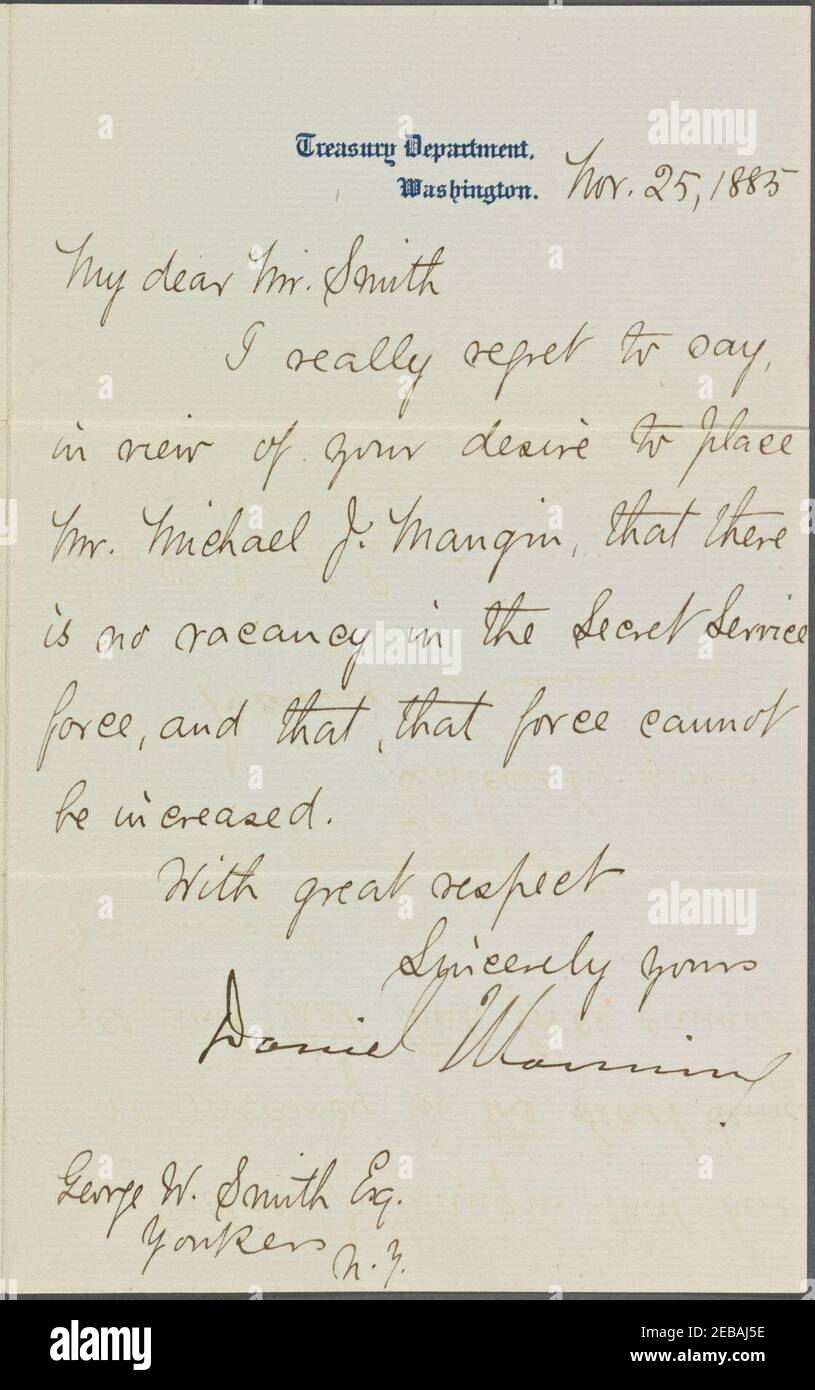 Treasury Department,
Washington. Nov. 25, 1885
My dear Mr. Smith
I really regret to say,
in view of your desire to place
Mr. Michael J. Mangin, that there
is no vacancy in the Secret Service
force, and that, that force cannot
be increased.
With great respect
Sincerely yours
Daniel Manning
George W. Smith Esq.
Yonkers
N.Y.
a alamy
alamy
Image ID: 2EBAJ5E
www.alamy.com